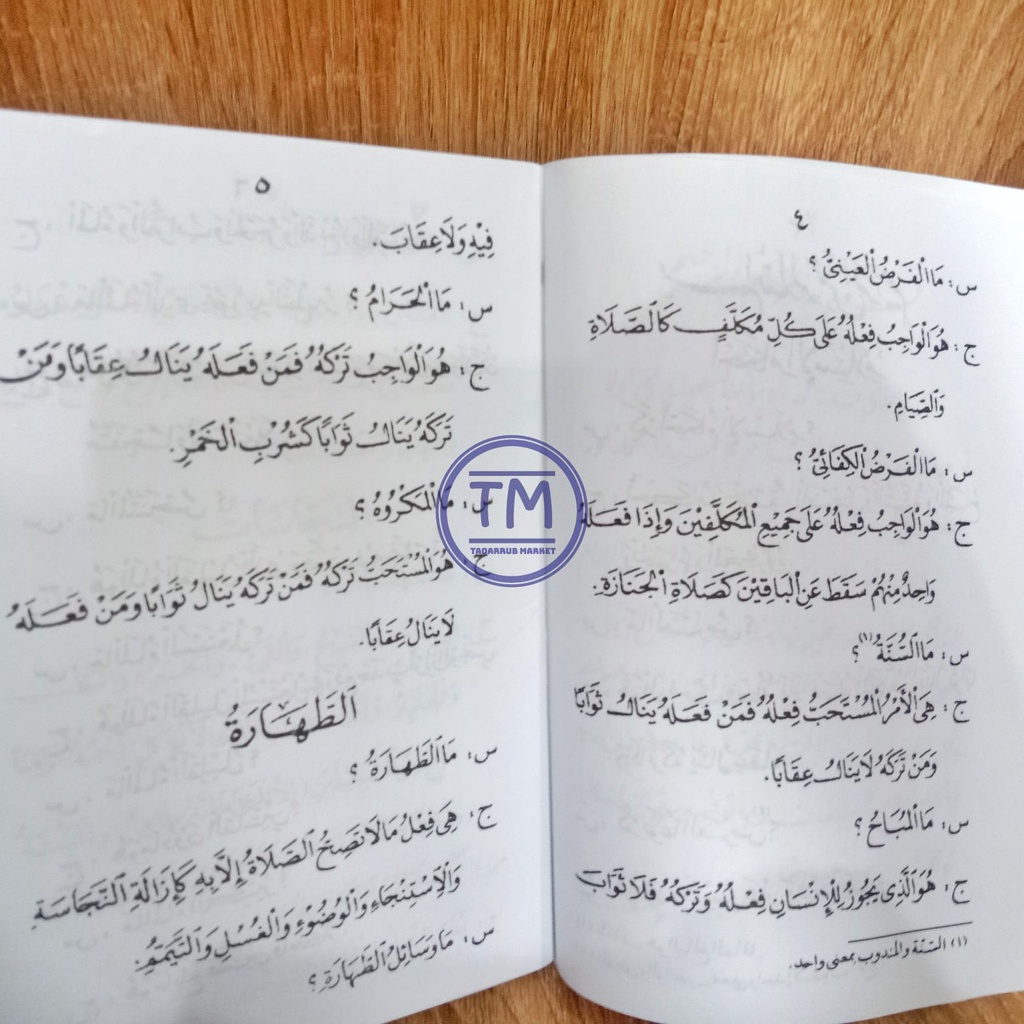 ٤
س : مَا الْفَرْضُ الْعَيْنِيُّ ؟
ج : هُوَ الْوَاجِبُ فِعْلُهُ عَلَى كُلِّ مُكَلَّفٍ كَالصَّلَاةِ
وَالصِّيَامِ.
س : مَا الْفَرْضُ الْكِفَائِيُّ ؟
ج : هُوَ الْوَاجِبُ فِعْلُهُ عَلَى جَمِيْعِ الْمُكَلَّفِيْنَ وَإِذَا فَعَلَهُ
وَاحِدٌ مِنْهُمْ سَقَطَ عَنِ الْبَاقِيْنَ كَصَلَاةِ الْجَنَازَةِ.
س : مَا السُّنَّةُ (١) ؟
ج : هِيَ الْأَمْرُ الْمُسْتَحَبُّ فِعْلُهُ فَمَنْ فَعَلَهُ يَنَالُ ثَوَابًا
وَمَنْ تَرَكَهُ لَا يَنَالُ عِقَابًا.
س : مَا الْمُبَاحُ ؟
ج : هُوَ الَّذِي يَجُوْزُ لِلْإِنْسَانِ فِعْلُهُ وَتَرْكُهُ فَلَا ثَوَابَ
(١) السنّة والمندوب بمعنى واحد.
٥
فِيْهِ وَلَا عِقَابَ.
س : مَا الْحَرَامُ ؟
ج : هُوَ الْوَاجِبُ تَرْكُهُ فَمَنْ فَعَلَهُ يَنَالُ عِقَابًا وَمَنْ
تَرَكَهُ يَنَالُ ثَوَابًا كَشُرْبِ الْخَمْرِ.
س : مَا الْمَكْرُوْهُ ؟
ج : هُوَ الْمُسْتَحَبُّ تَرْكُهُ فَمَنْ تَرَكَهُ يَنَالُ ثَوَابًا وَمَنْ فَعَلَهُ
لَا يَنَالُ عِقَابًا.
الطَّهَارَةُ
س : مَا الطَّهَارَةُ ؟
ج : هِيَ فِعْلُ مَا لَا تَصِحُّ الصَّلَاةُ إِلَّا بِهِ كَإِزَالَةِ النَّجَاسَةِ
وَالْاِسْتِنْجَاءِ وَالْوُضُوْءِ وَالْغُسْلِ وَالتَّيَمُّمِ.
س : مَا وَسَائِلُ الطَّهَارَةِ ؟
TM
TAQARRUB MARKET